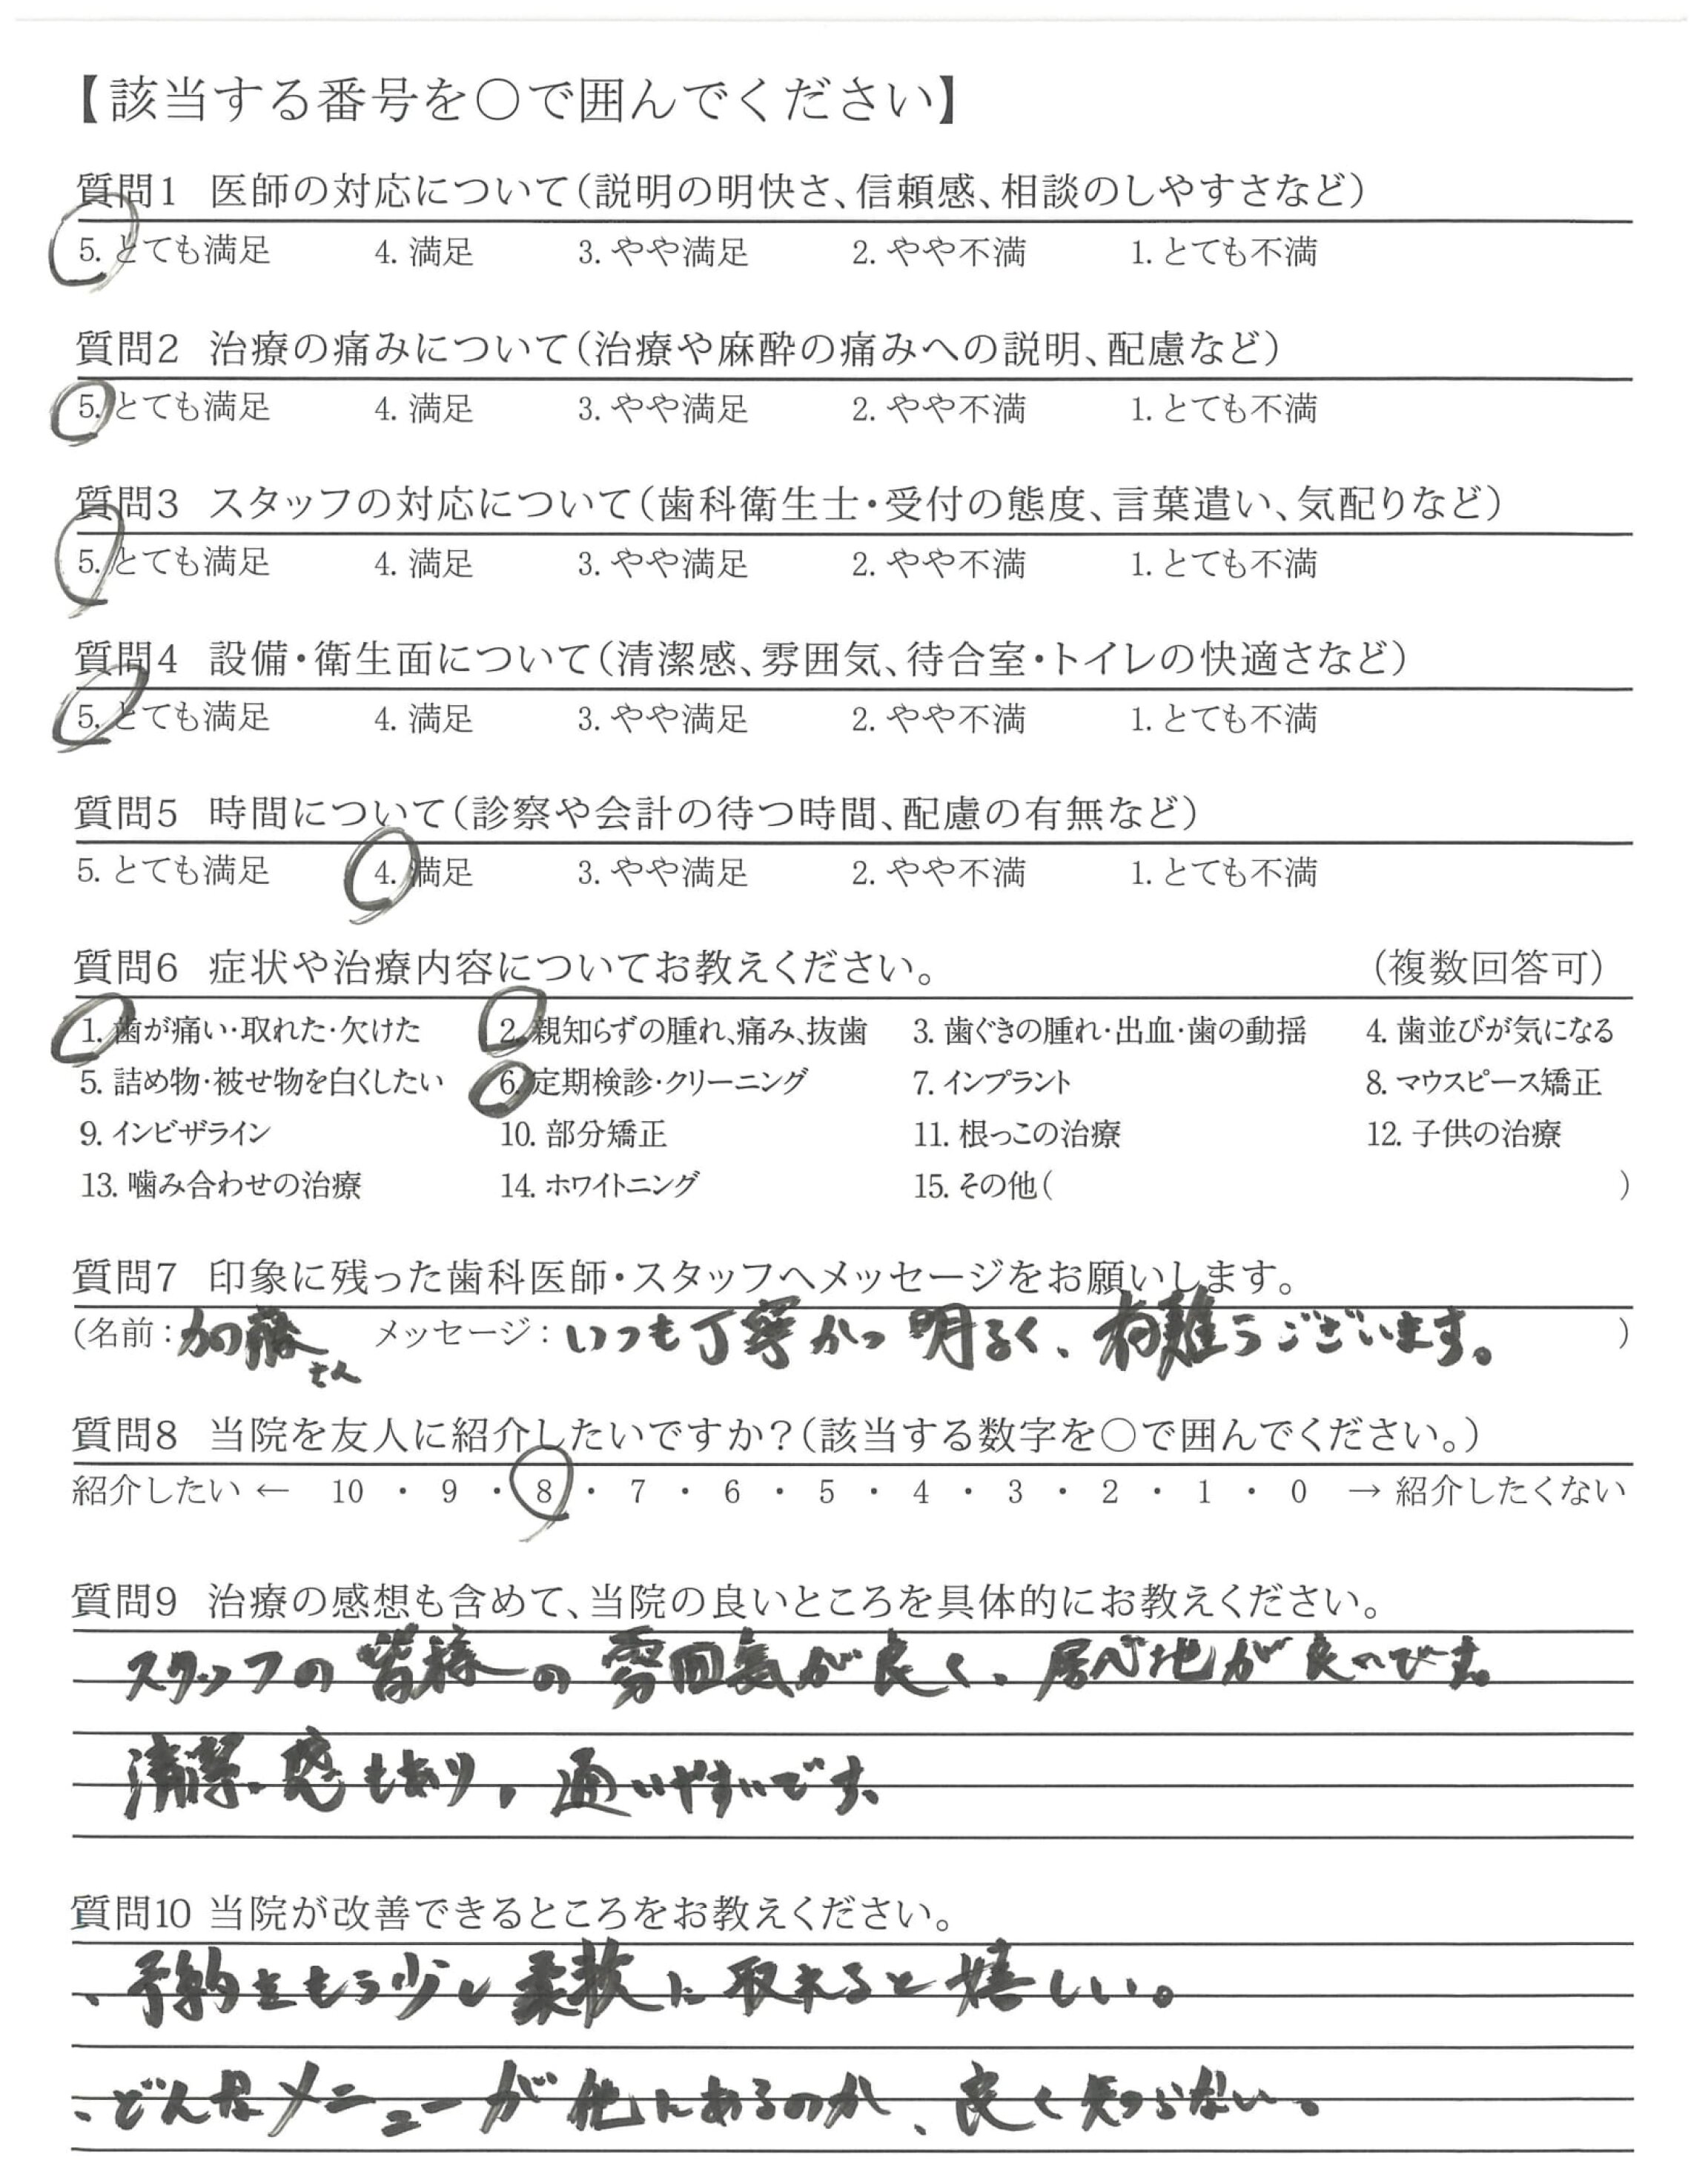 【該当する番号を〇で囲んでください】
質問1 医師の対応について（説明の明快さ、信頼感、相談のしやすさなど）
5. とても満足 4. 満足 3. やや満足 2. やや不満 1. とても不満
質問2 治療の痛みについて（治療や麻酔の痛みへの説明、配慮など）
5. とても満足 4. 満足 3. やや満足 2. やや不満 1. とても不満
質問3 スタッフの対応について（歯科衛生士・受付の態度、言葉遣い、気配りなど）
5. とても満足 4. 満足 3. やや満足 2. やや不満 1. とても不満
質問4 設備・衛生面について（清潔感、雰囲気、待合室・トイレの快適さなど）
5. とても満足 4. 満足 3. やや満足 2. やや不満 1. とても不満
質問5 時間について（診察や会計の待つ時間、配慮の有無など）
5. とても満足 4. 満足 3. やや満足 2. やや不満 1. とても不満
質問6 症状や治療内容についてお教えください。 （複数回答可）
1. 歯が痛い・取れた・欠けた 2. 親知らずの腫れ、痛み、抜歯 3. 歯ぐきの腫れ・出血・歯の動揺 4. 歯並びが気になる
5. 詰め物・被せ物を白くしたい 6. 定期検診・クリーニング 7. インプラント 8. マウスピース矯正
9. インビザライン 10. 部分矯正 11. 根っこの治療 12. 子供の治療
13. 噛み合わせの治療 14. ホワイトニング 15. その他（ ）
質問7 印象に残った歯科医師・スタッフへメッセージをお願いします。
（名前：加藤さん メッセージ：いつも丁寧かつ明るく、有難うございます。 ）
質問8 当院を友人に紹介したいですか？（該当する数字を〇で囲んでください。）
紹介したい ← 10 ・ 9 ・ 8 ・ 7 ・ 6 ・ 5 ・ 4 ・ 3 ・ 2 ・ 1 ・ 0 → 紹介したくない
質問9 治療の感想も含めて、当院の良いところを具体的にお教えください。
スタッフの皆様の雰囲気が良く、居心地が良いです。
清潔感もあり、通いやすいです。
質問10 当院が改善できるところをお教えください。
、予約をもう少し柔軟に取れると嬉しい。
、どんなメニューが他にあるのか、良く知らない。